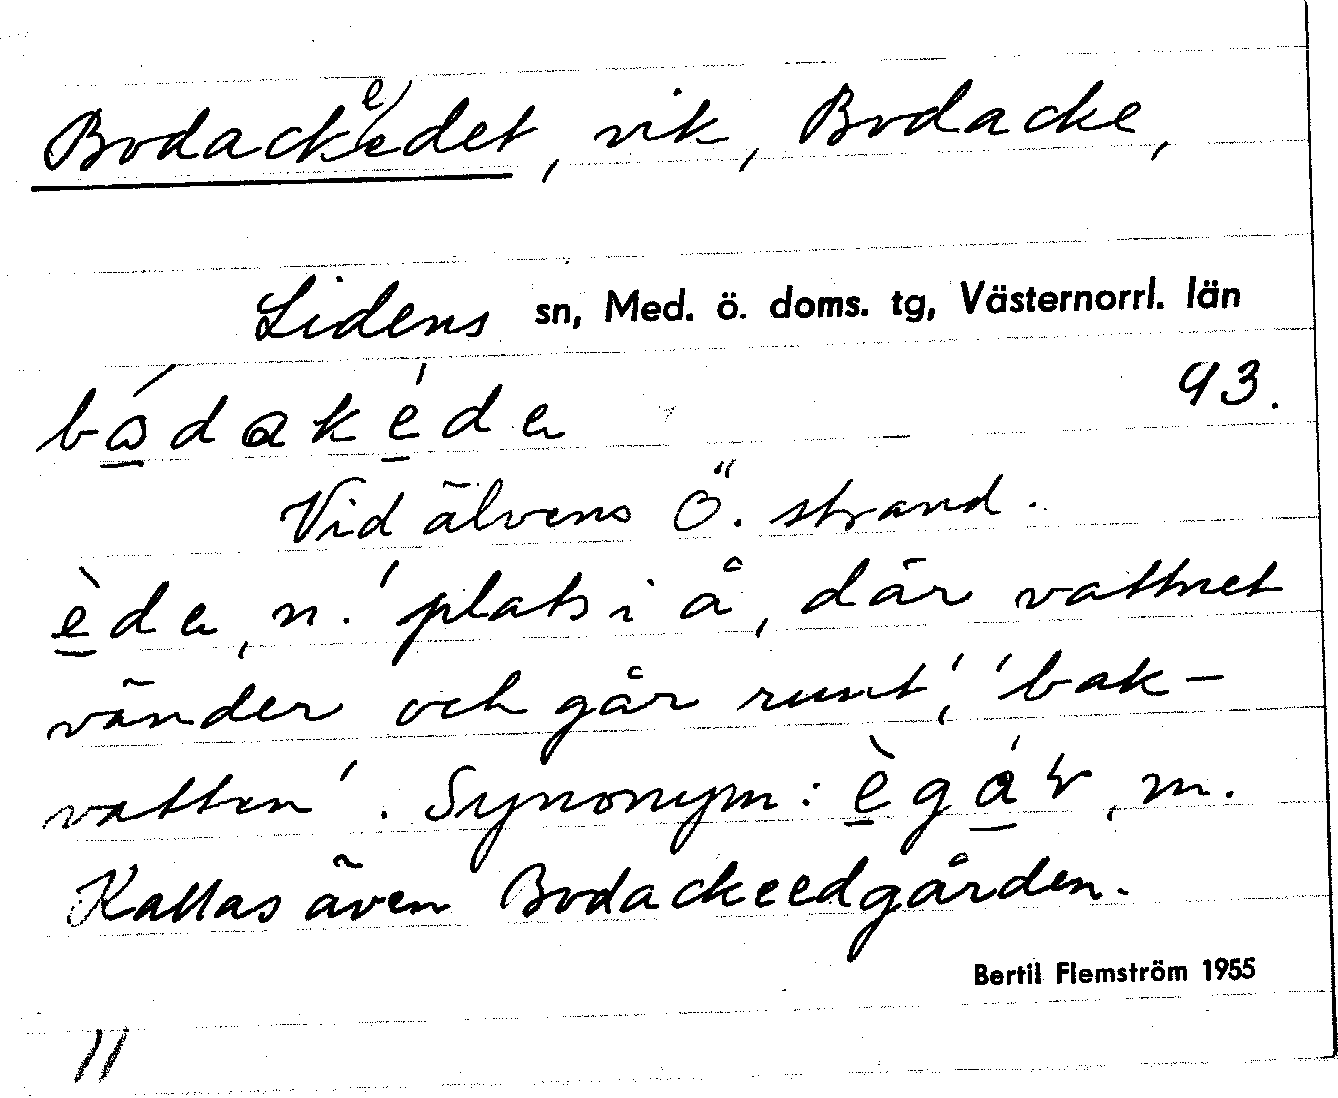 Bodackeedet, vik, Bodacke,
Lidens sn, Med. ö. doms. tg, Västernorrl. län
bådakéda 93.
Vid älvens Ö. strand.
èda, n. 'plats i å, där vattnet
vänder och går runt', 'bak-
vatten'. Synonym: ègár, m.
Kallas även Bodackeedgården.
Bertil Flemström 1955
11